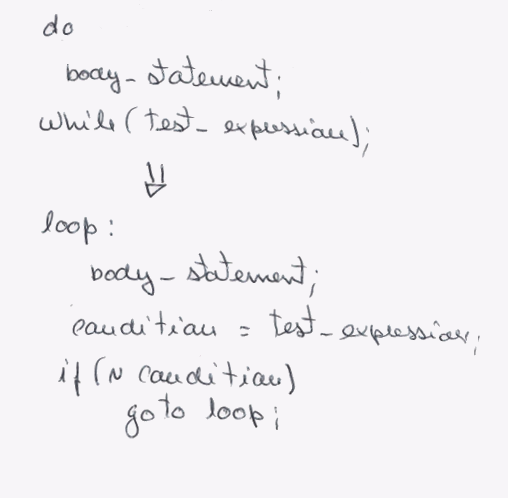 do
body_statement;
while(test_expression);
⇓
loop:
body_statement;
condition = test_expression;
if(~condition)
goto loop;